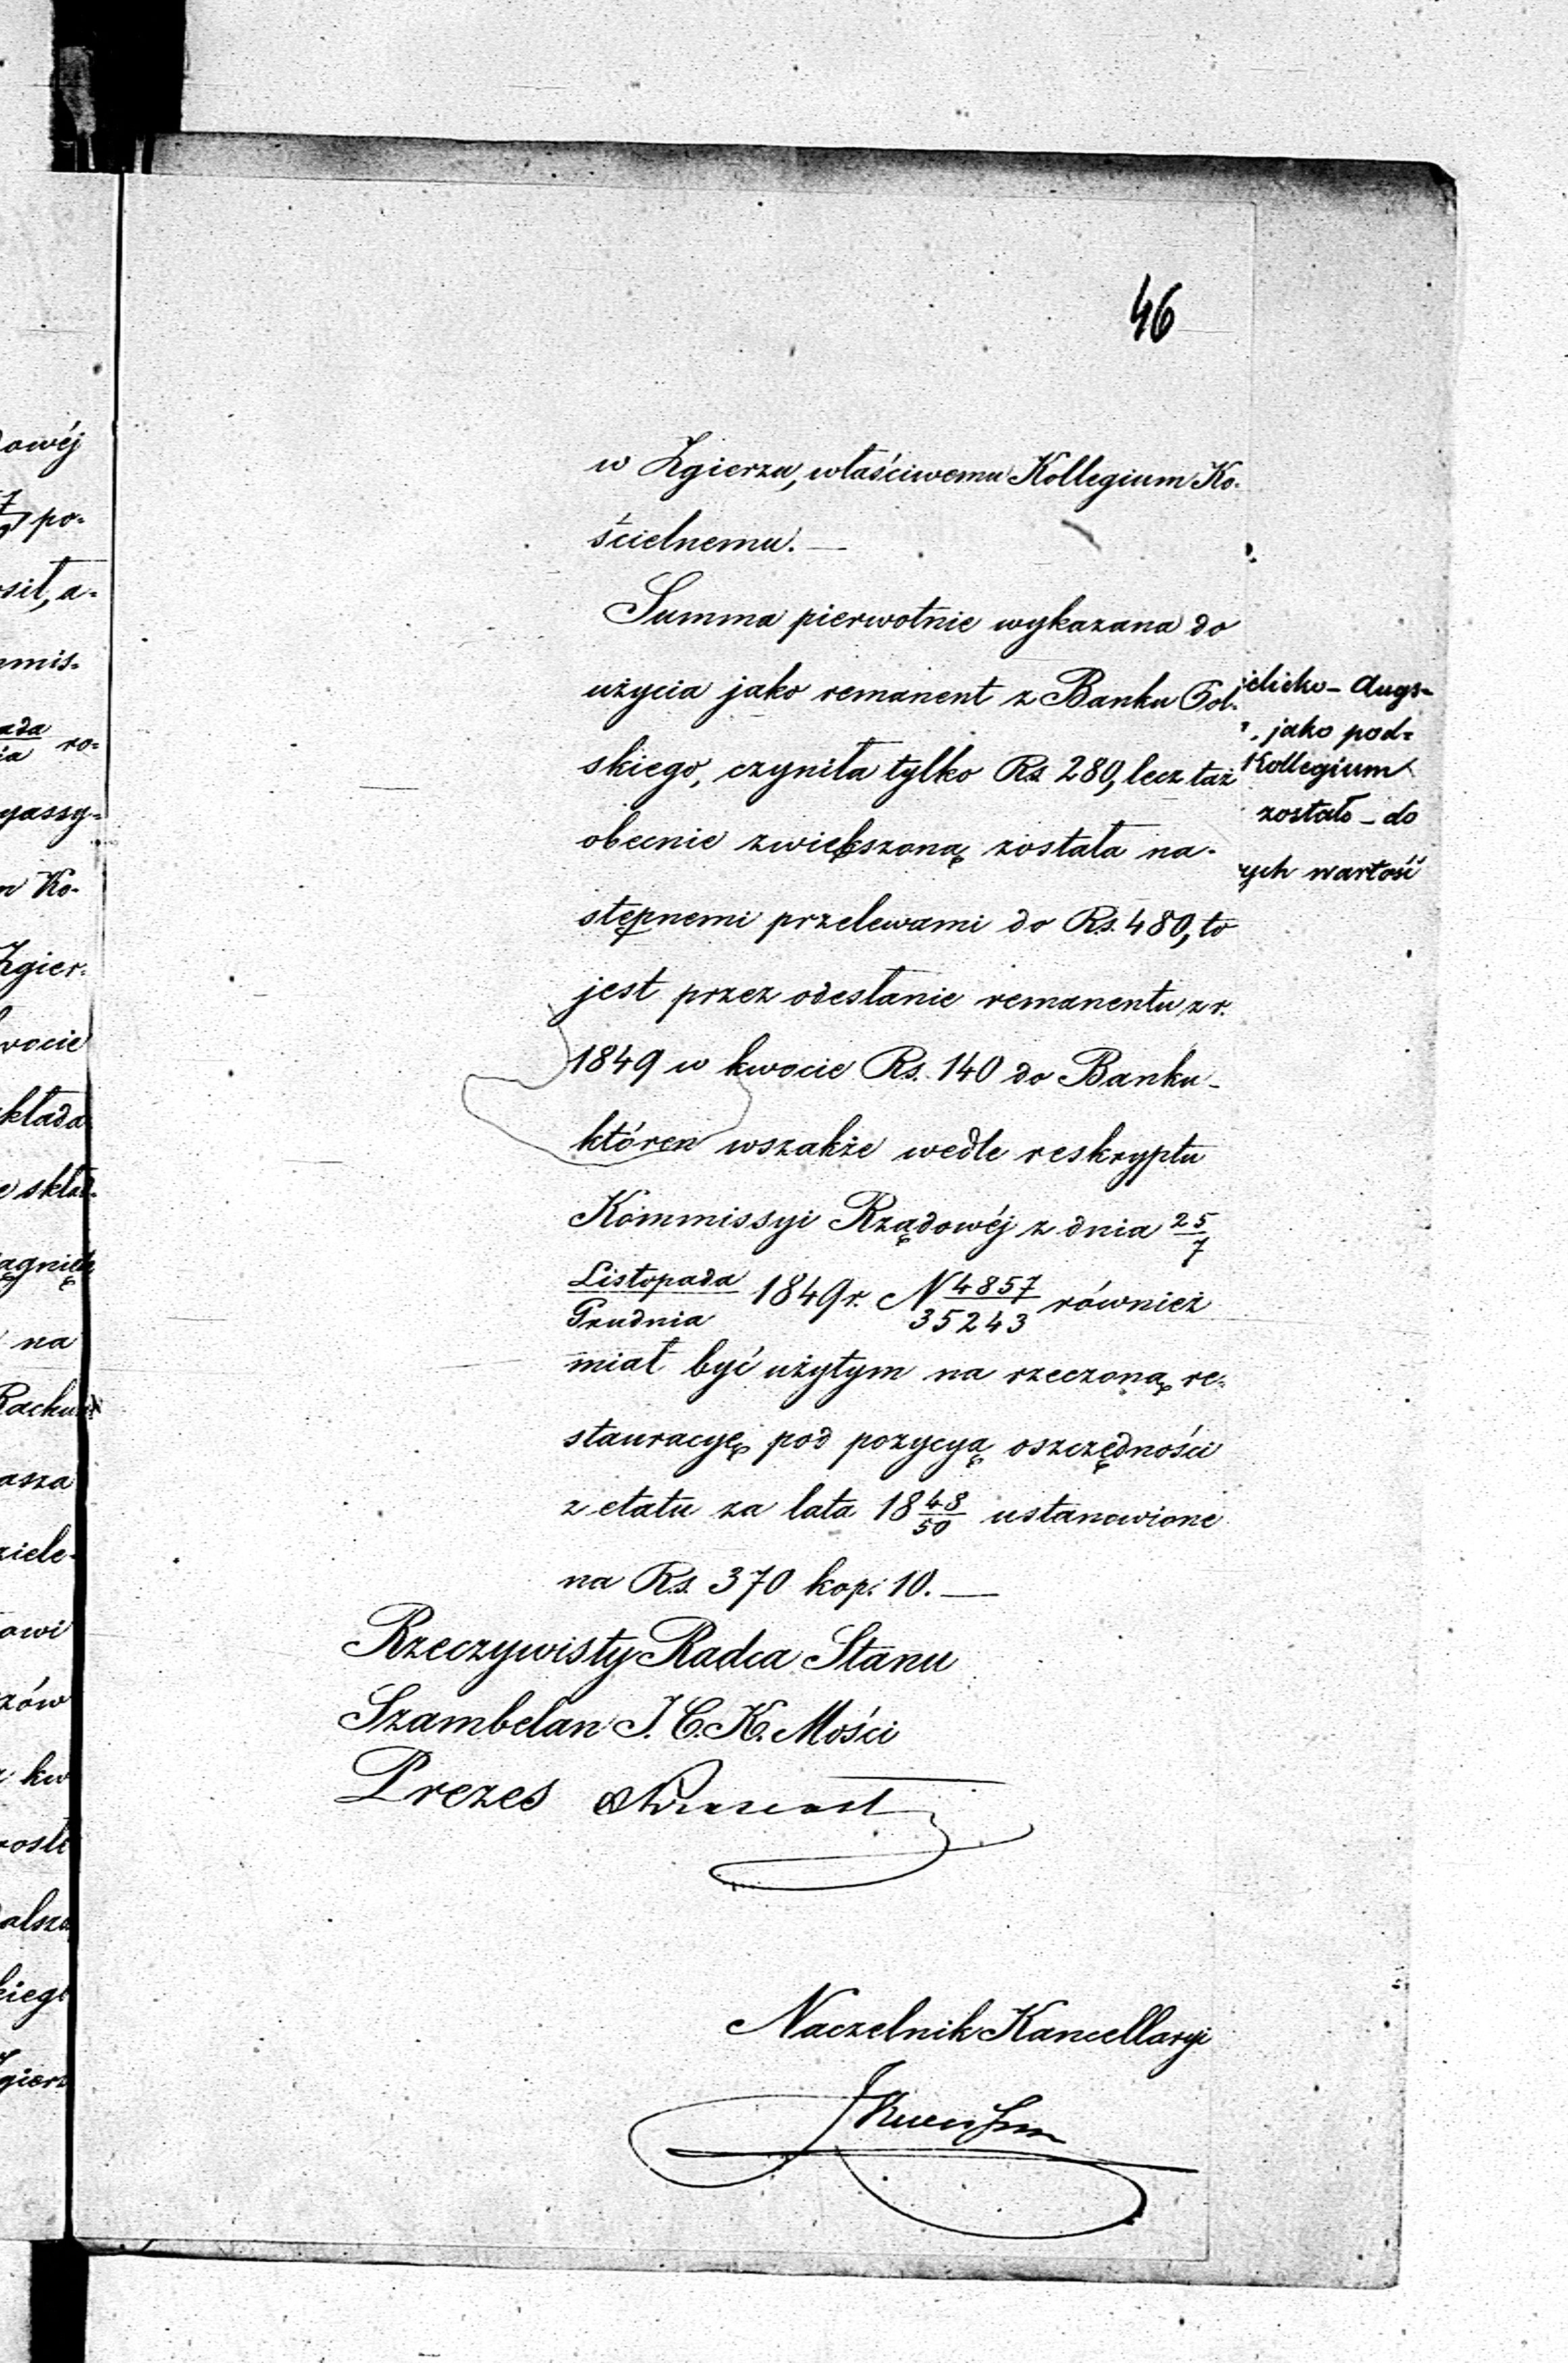 46
w Zgierzu, właściwemu Kollegium Ko-
ścielnemu. —
Summa pierwotnie wykazana do
użycia jako remanent z Banku Pol-
skiego, czyniła tylko Rs. 280, lecz taż
obecnie zwiększoną została na-
stępnemi przelewami do Rs. 480, to
jest przez odesłanie remanentu z r.
1849 w kwocie Rs. 140 do Banku -
któren wszakże wedle reskryptu
Kommissyi Rządowéj z dnia 25/7
Listopada/Grudnia 1849 r. N 4857/35243 również
miał być użytym na rzeczoną re-
stauracyę pod pozycyą oszczędności
z etatu za lata 18 48/50 ustanowione
na Rs. 370 kop. 10. —
Rzeczywisty Radca Stanu
Szambelan J. C. K. Mości
Prezes
Naczelnik Kancellaryi
elicko - Augs-
jako pod-
Kollegium
zostało - do
ych wartość
owéj
po-
sił, a-
mis-
ada/ia ro-
yassy-
m Ko-
Zgier-
wocie
kłada
e skład-
ągnięć
na
Rachu
asza
ziele-
owi
zów
kw
rosł
alsz
kieg
gierz